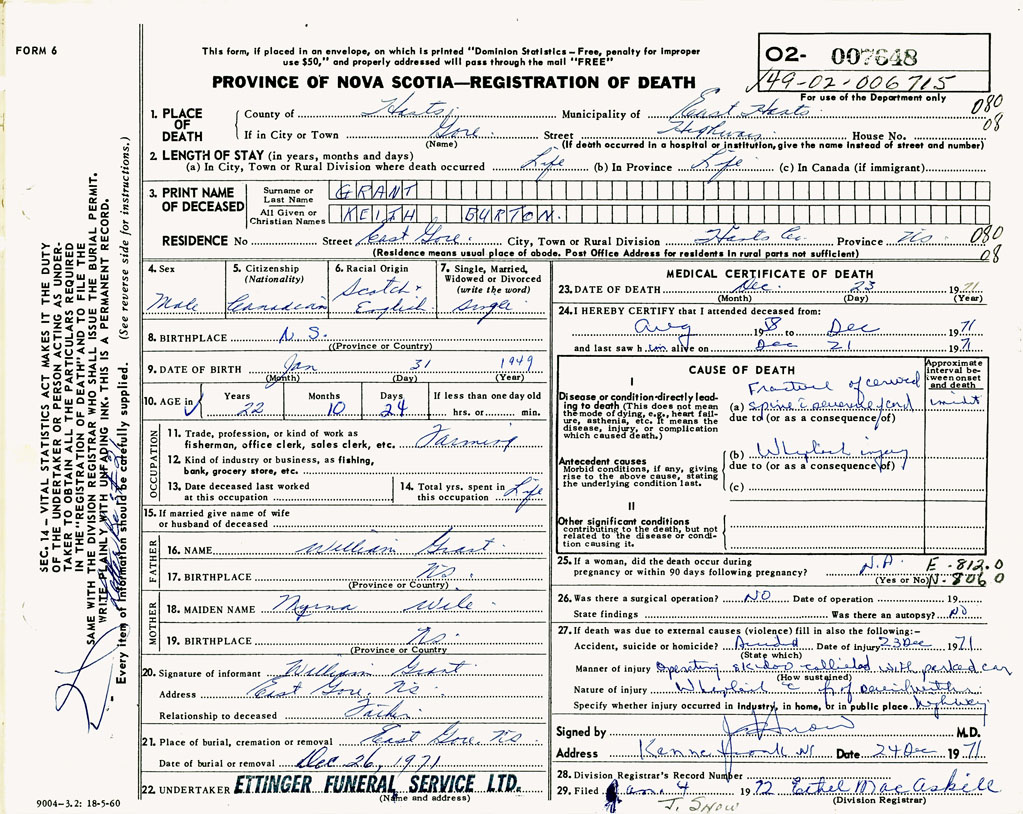 FORM 6
This form, if placed in an envelope, on which is printed "Dominion Statistics – Free, penalty for improper
use $50," and properly addressed will pass through the mail "FREE"
PROVINCE OF NOVA SCOTIA—REGISTRATION OF DEATH
02- 007648
49-02-006715
For use of the Department only
080
08
1. PLACE OF DEATH
County of Hants Municipality of East Hants
If in City or Town Gore Street Highway House No.
(Name) (If death occurred in a hospital or institution, give the name instead of street and number)
2. LENGTH OF STAY (in years, months and days)
(a) In City, Town or Rural Division where death occurred Life (b) In Province Life (c) In Canada (if immigrant)
3. PRINT NAME OF DECEASED
Surname or Last Name GRANT
All Given or Christian Names KEITH BURTON.
RESIDENCE No Street East Gore City, Town or Rural Division Hants Co. Province NS 080
(Residence means usual place of abode. Post Office Address for residents in rural parts not sufficient) 08
4. Sex Male
5. Citizenship (Nationality) Canadian
6. Racial Origin Scotch & English
7. Single, Married, Widowed or Divorced (write the word) Single
8. BIRTHPLACE N.S.
(Province or Country)
9. DATE OF BIRTH Jan 31 1949
(Month) (Day) (Year)
10. AGE in Years 22 Months 10 Days 24 If less than one day old hrs. or min.
OCCUPATION
11. Trade, profession, or kind of work as
fisherman, office clerk, sales clerk, etc. Farming
12. Kind of industry or business, as fishing,
bank, grocery store, etc.
13. Date deceased last worked
at this occupation
14. Total yrs. spent in
this occupation Life
15. If married give name of wife
or husband of deceased
FATHER
16. NAME William Grant
17. BIRTHPLACE NS.
(Province or Country)
MOTHER
18. MAIDEN NAME Myrna Wile
19. BIRTHPLACE NS.
(Province or Country
20. Signature of informant William Grant
Address East Gore, NS
Relationship to deceased Father
21. Place of burial, cremation or removal East Gore, NS
Date of burial or removal Dec 26, 1971
22. UNDERTAKER ETTINGER FUNERAL SERVICE LTD.
(Name and address)
9004–3.2: 18-5-60
MEDICAL CERTIFICATE OF DEATH
23. DATE OF DEATH Dec. 23 1971
(Month) (Day) (Year)
24. I HEREBY CERTIFY that I attended deceased from:
Aug 19 to Dec 1971
and last saw him alive on Dec 21 1971
CAUSE OF DEATH
Approximate interval between onset and death
I
Disease or condition directly leading to death (This does not mean the mode of dying, e.g., heart failure, asthenia, etc. It means the disease, injury, or complication which caused death.)
Fracture of cervical
(a) spine cord
due to (or as a consequence of)
Antecedent causes
Morbid conditions, if any, giving rise to the above cause, stating the underlying condition last.
(b) Whiplash injury
due to (or as a consequence of)
(c)
II
Other significant conditions
contributing to the death, but not related to the disease or condition causing it.
25. If a woman, did the death occur during
pregnancy or within 90 days following pregnancy? N.A. E-812.0
(Yes or No) N-806 0
26. Was there a surgical operation? NO Date of operation 19
State findings Was there an autopsy? NO
27. If death was due to external causes (violence) fill in also the following:–
Accident, suicide or homicide? Date of injury 23 Dec 1971
(State which)
Manner of injury Operating skidoo collided with parked car
(How sustained)
Nature of injury Whiplash
Specify whether injury occurred in industry, in home, or in public place highway
Signed by M.D.
Address Date 24 Dec 1971
28. Division Registrar's Record Number
29. Filed Jan. 4 1972 Ethel MacAskill
(Division Registrar)
J. SNOW
SEC. 14 – VITAL STATISTICS ACT MAKES IT THE DUTY
OF THE UNDERTAKER OR PERSON ACTING AS UNDER-
TAKER TO OBTAIN ALL THE PARTICULARS REQUIRED
IN THE "REGISTRATION OF DEATH" AND TO FILE THE
SAME WITH THE DIVISION REGISTRAR WHO SHALL ISSUE THE BURIAL PERMIT.
WRITE PLAINLY WITH UNFADING INK. THIS IS A PERMANENT RECORD.
Every item of information should be carefully supplied. (See reverse side for instructions.)